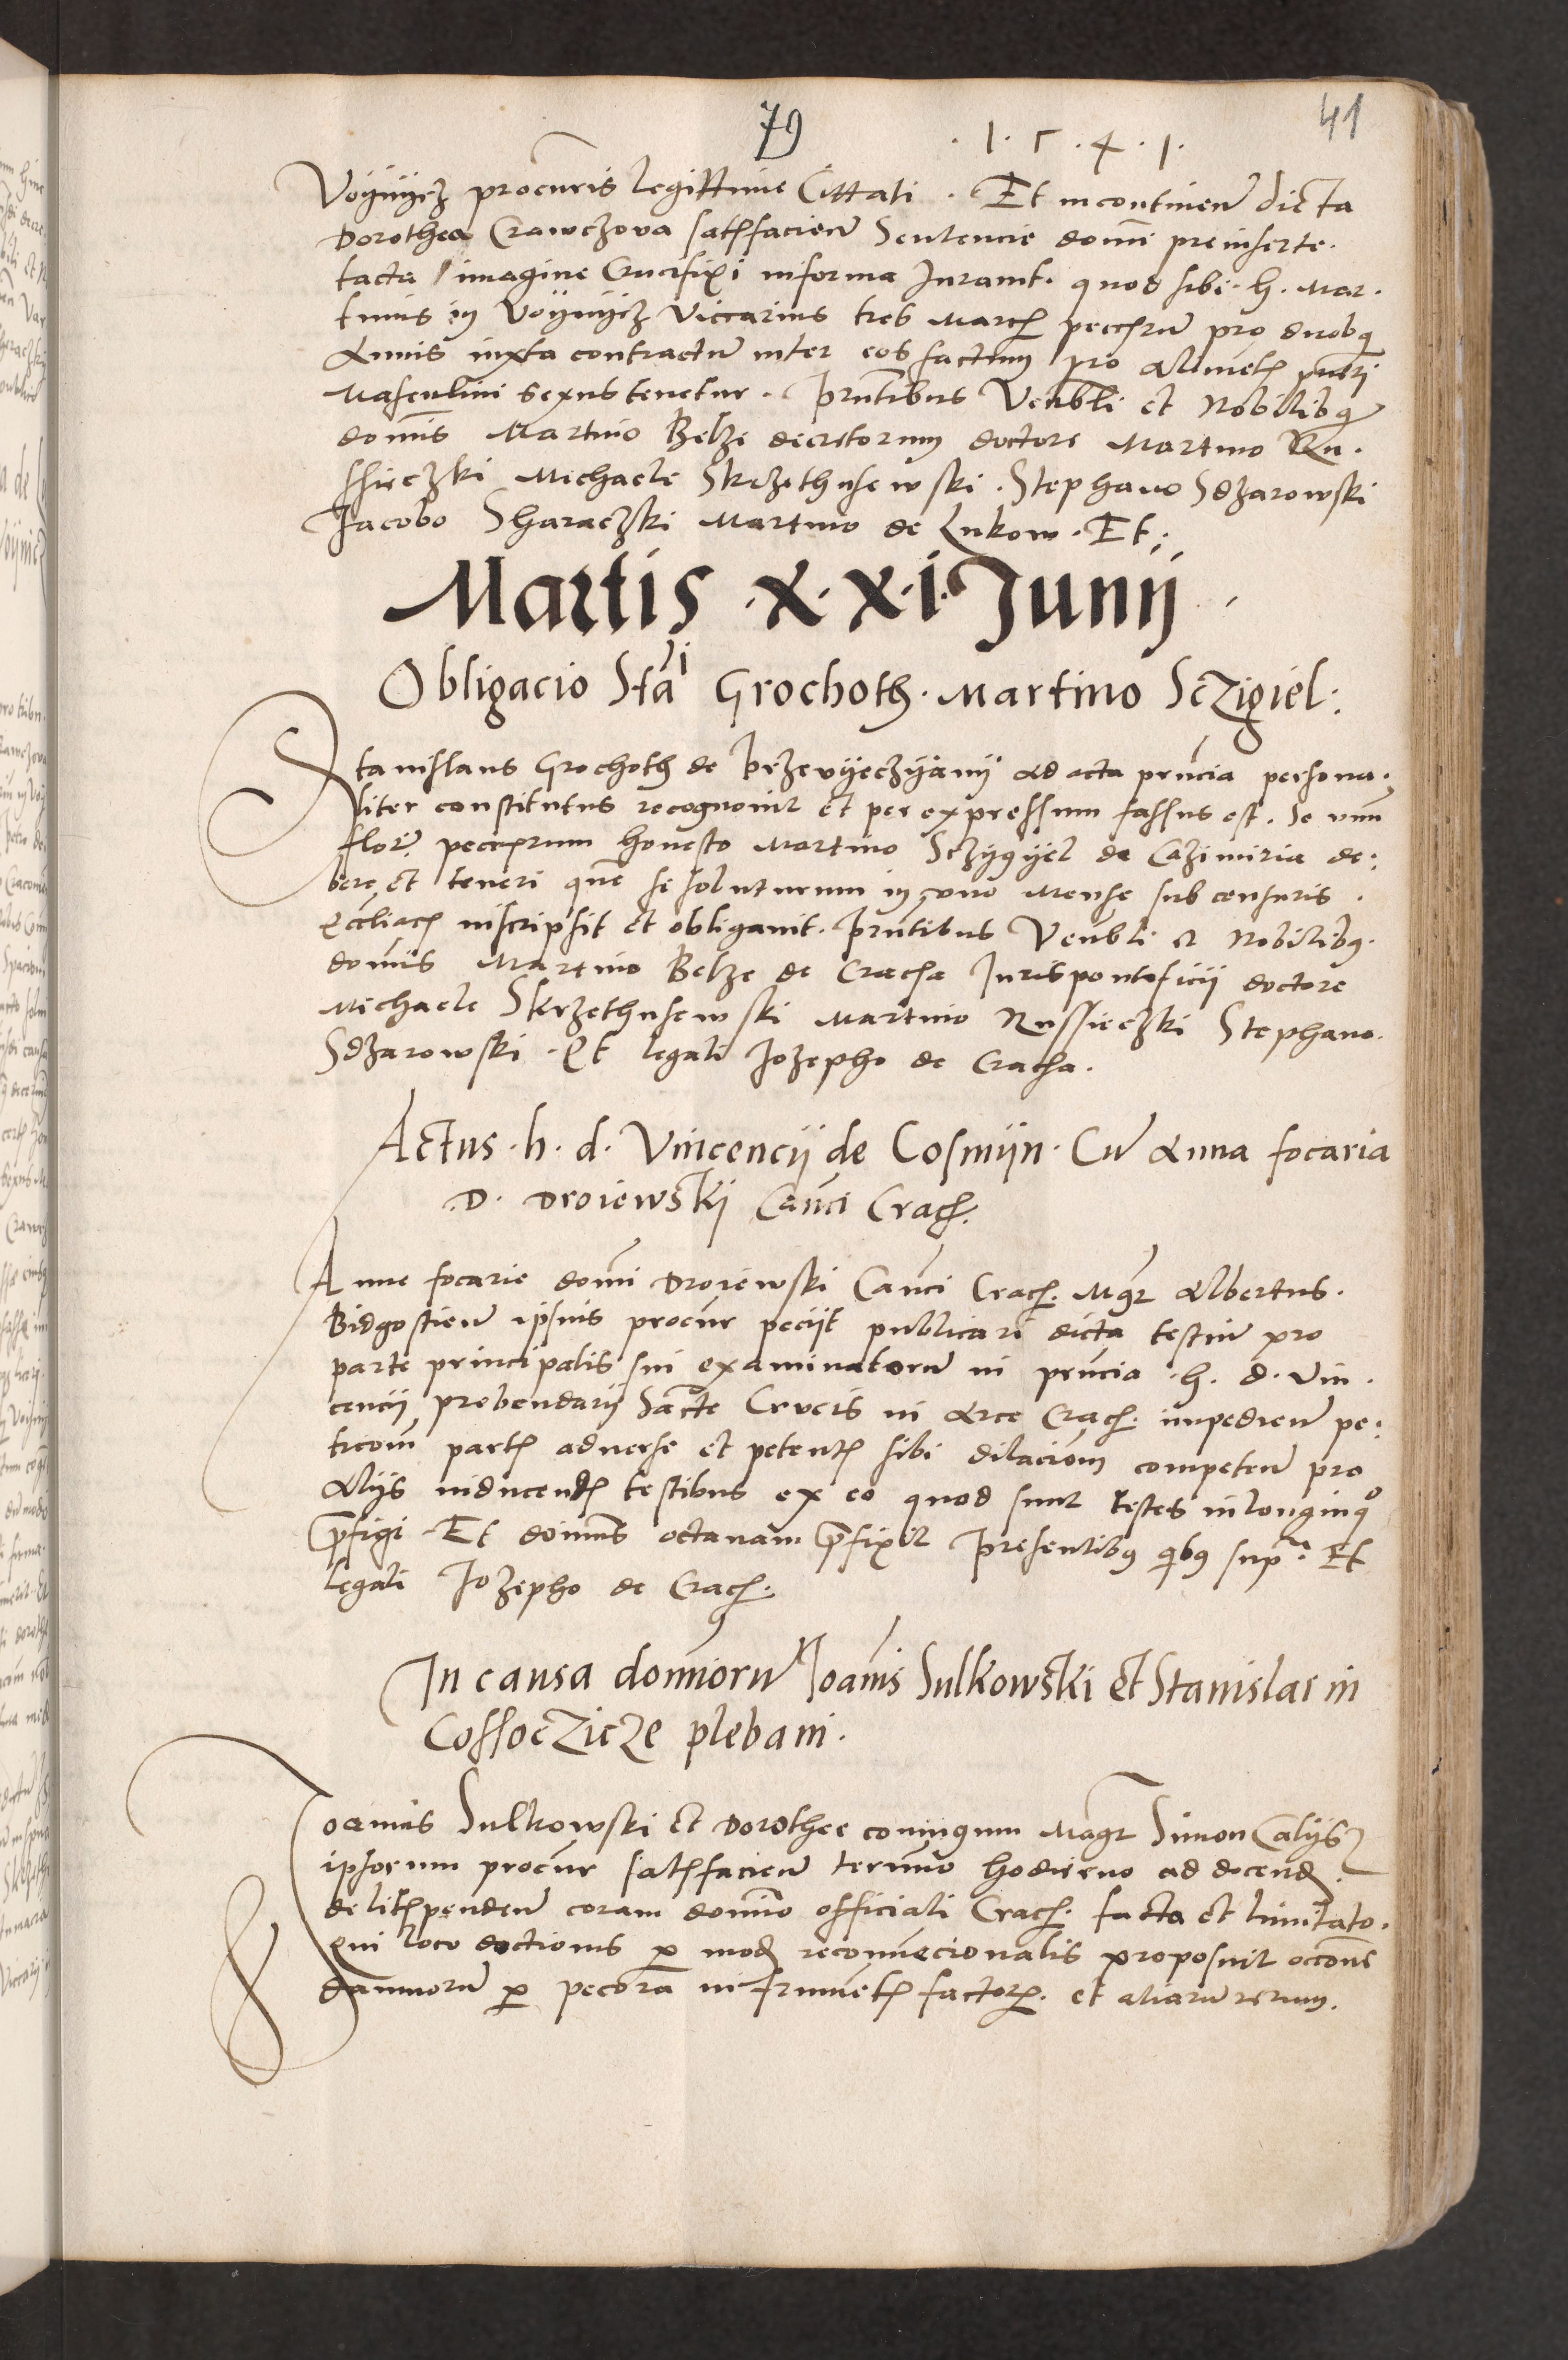 79 · 1 · 5 · 4 · 1 · 41
Voÿnÿcz procuris legittime Cittati · Et incontinen̄ dicta
Dorothea Crawczova satisfacien̄ Sentencie domi preinserte ·
tacta imagine Crucifixi in forma Juravit · quod sibi · h · Mar ·
tinus in Voÿnÿcz Viccarius tres Marcs peccurū pro duobq
Annis iuxta contractū inter eos factum pro Alimets pueri
Masculini sexus tenetur · Prntibus Venbli et Nobilibq
domis Martino Belze decretorum doctore Martino Ru ·
ssieczki Michaele Skrzethusewski · Stephano Sdzarowski
Jacobo Sharaczki Martino de Lukow · Et ·
Martis · X · X · i · Junij ·
Obligacio Stai Grochoth · Martino Sczigiel :
Stanislaus Grochoth de Przevÿeczÿanÿ ad acta prncia persona ·
liter constitutus recognovit et per expressum fassus est · Se unū
flor peccurum honesto Martino Sczÿgÿel de Cazimiria de :
bere et teneri quē se soluturum in uno Mense sub censuris ·
Eccliacs inscripsit et obligavit · Prntibus Venbli et Nobilibq ·
domis Martino Belze de Cracha Juris pontificii doctore
Michaele Skrzethusewski Martino Russieczki Stephano ·
Sdzarowski · Et legali Jozepho de Cracha ·
Actus · h · d · Vincencij de Cosmijn · Cū Anna focaria
D · Droiewskij Canci Crach ·
Anne focarie domi Droiewski Canci Crach · Mgr Albertus ·
Bidgostien̄ ipsius procur peciit publicari dicta testiū pro
parte principalis sui examinatorū in prncia · h · d · Vin ·
cencij prebendarij Sancte Crucis in Arce Crach · impedien̄ pe :
ticom partis adverse et petents sibi dilaciom competen̄ pro
Alijs inducends testibus ex eo quod sunt testes in longinqo
pfigi · Et doinus octavam pfixit Presentibq qibq supa · Et
legali Jozepho de Crach ·
In causa domorū Joanis Sulkowski et Stanislai in
Cossoczicze plebani ·
Joannis Sulkowski et Dorothee coniugum Magr Simon Calijs
ipsorum procur satisfacien̄ termino hodierno ad docend ·
de litispenden̄ coram domino officiali Crach · facto et limitato ·
qui loco doctionis p mod reconvecionalis proposuit occone
damnorū p pecora in frumets factor · et aliarū rerum ·